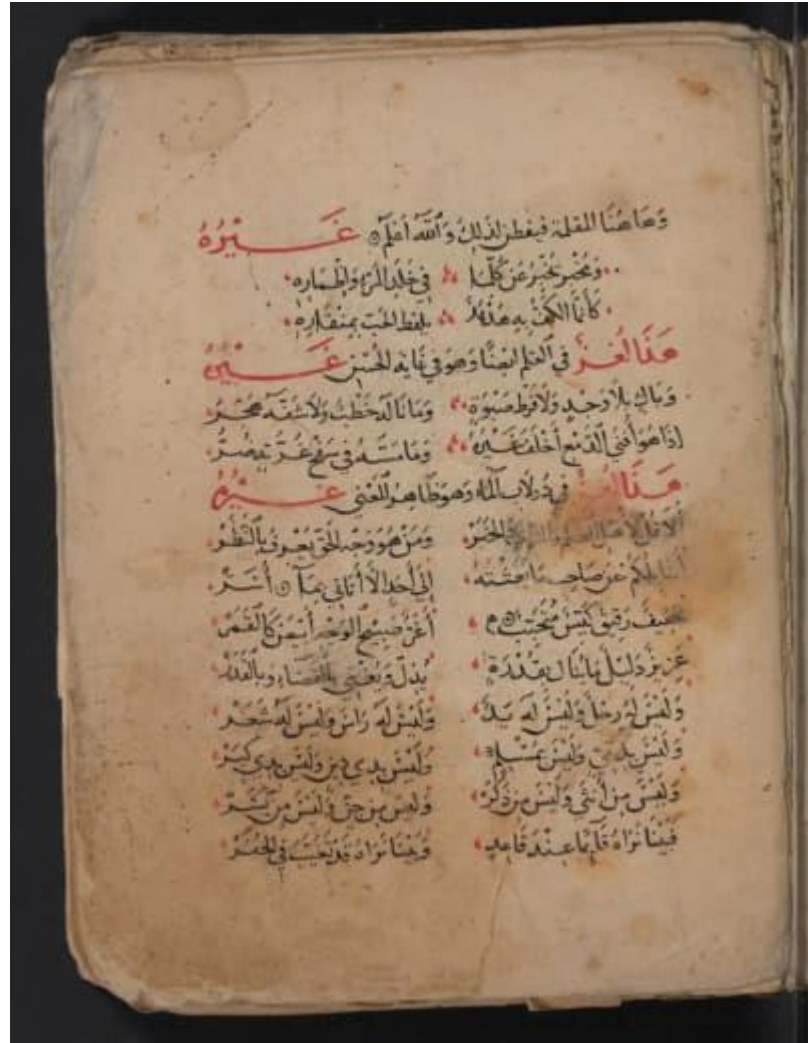 وهاهنا المقلمة فيفطن لذلك والله أعلم غيره
ومخبر يخبر عن كلما في خلد المرء وإظماره
كأنما الكف به هدهد يلقط الحب بمنقاره
هذا لغز في القلم ايضا وهو في غاية الحسن غيره
وباك بلا وجد ولا فرط صبوة وما ناله خطب ولا شفه هجر
إذا هو أفنى الدمع أخلف غيره وما مسه في سفح
هذا لغز في دولاب الماء وهو ظاهر المعنى غيره
ألا قل لأهل العلم ومن هو وجه الحق يعرف بالنظر
عن صاحب إلى أحد إلا أتاني
خفيف رقيق كيس أغر صبيح الوجه أبيض كالقمر
عزيز ذليل ما ينال بقدرة يذل ويغني بالقضاء وبالقدر
وليس له رجل وليس له يد وليس له راس وليس له شعر
وليس بذي وليس وليس بذي دين وليس بذي كبر
وليس من أنثى وليس من ذكر وليس من جن وليس من بشر
فبينا نراه قائما عند قاعد وحينا نراه قد تغيب في الحفر